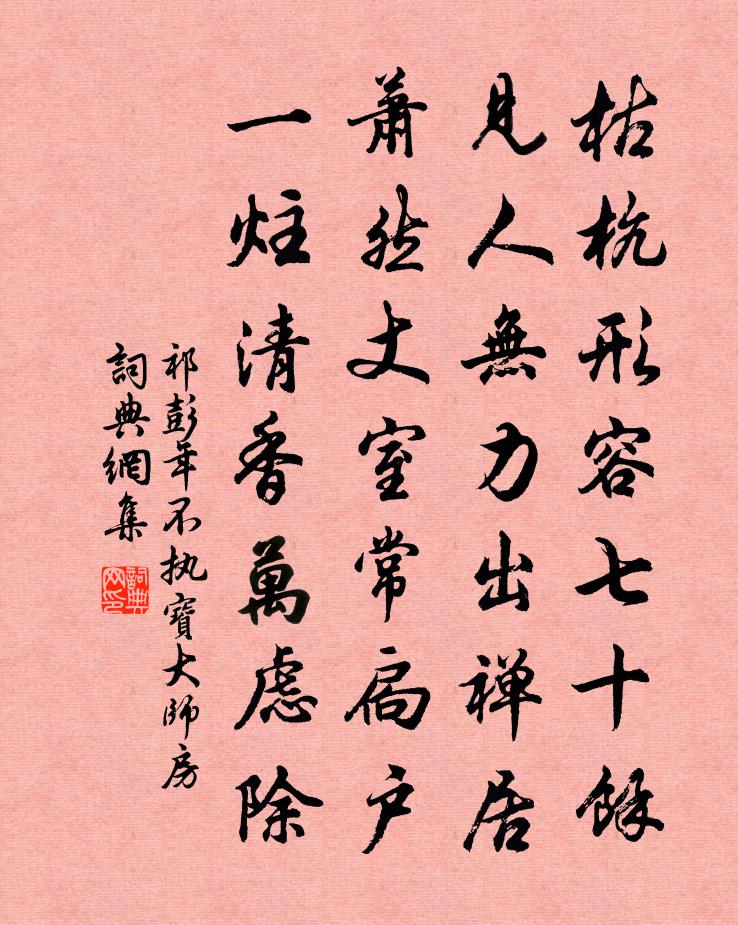 枯杭形容七十餘
見人無力出禅居
蕭然丈室常扃户
一炷清香萬慮除
祁彭年不执寶大師房
詞典網集
詞典
网印